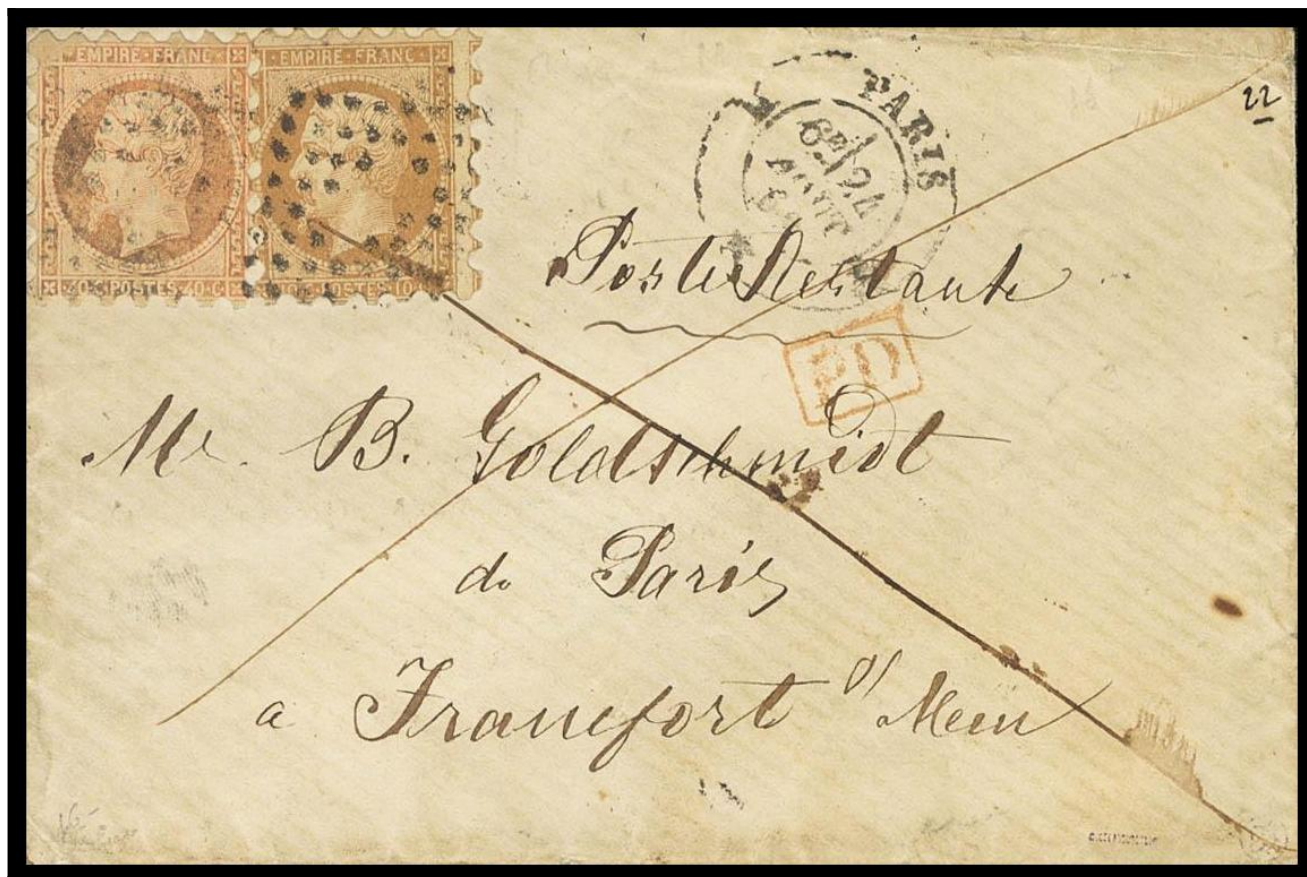 EMPIRE · FRANC · EMPIRE · FRANC ·
40 · C · POSTES · 40 · C POSTES · 10 · C
PARIS
6E 24
AOUT
22
Poste Restante
PD
Mr. B. Goldschmidt
de Paris
a Francfort s/ Mein